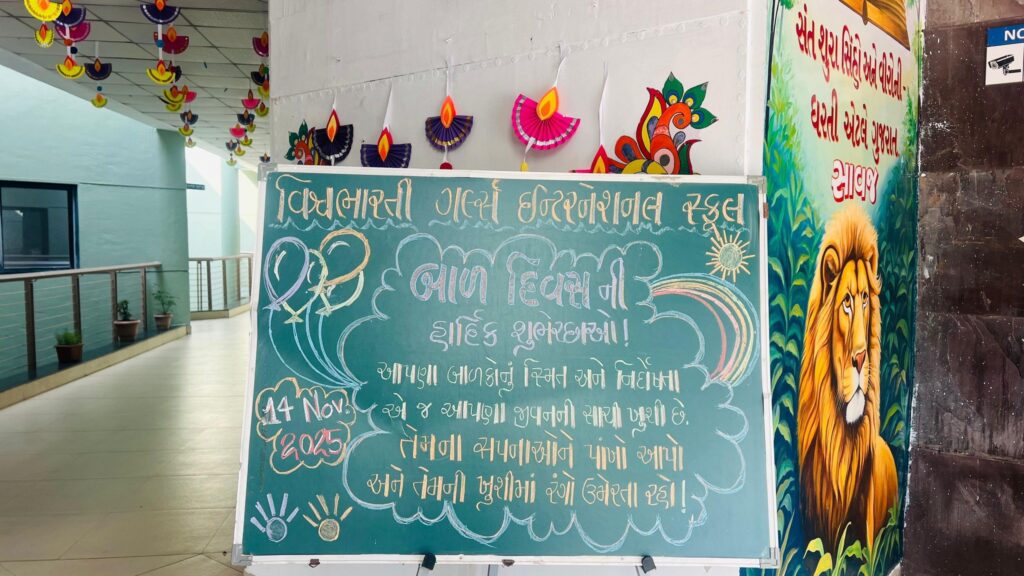 વિશ્વભારતી ગર્લ્સ ઇન્ટરનેશનલ સ્કૂલ
બાળ દિવસ ની
હાર્દિક શુભેચ્છાઓ!
આપણા બાળકોનું સ્મિત અને નિર્દોષતા
એ જ આપણા જીવનની સાચી ખુશી છે.
તેમના સપનાઓને પાંખો આપો
અને તેમની ખુશીમાં રંગો ઉમેરતા રહો!
14 Nov.
2025
સંત શુરા સિંહો અને વીરોની -
ધરતી એટલે ગુજરાત
સાવજ
NO